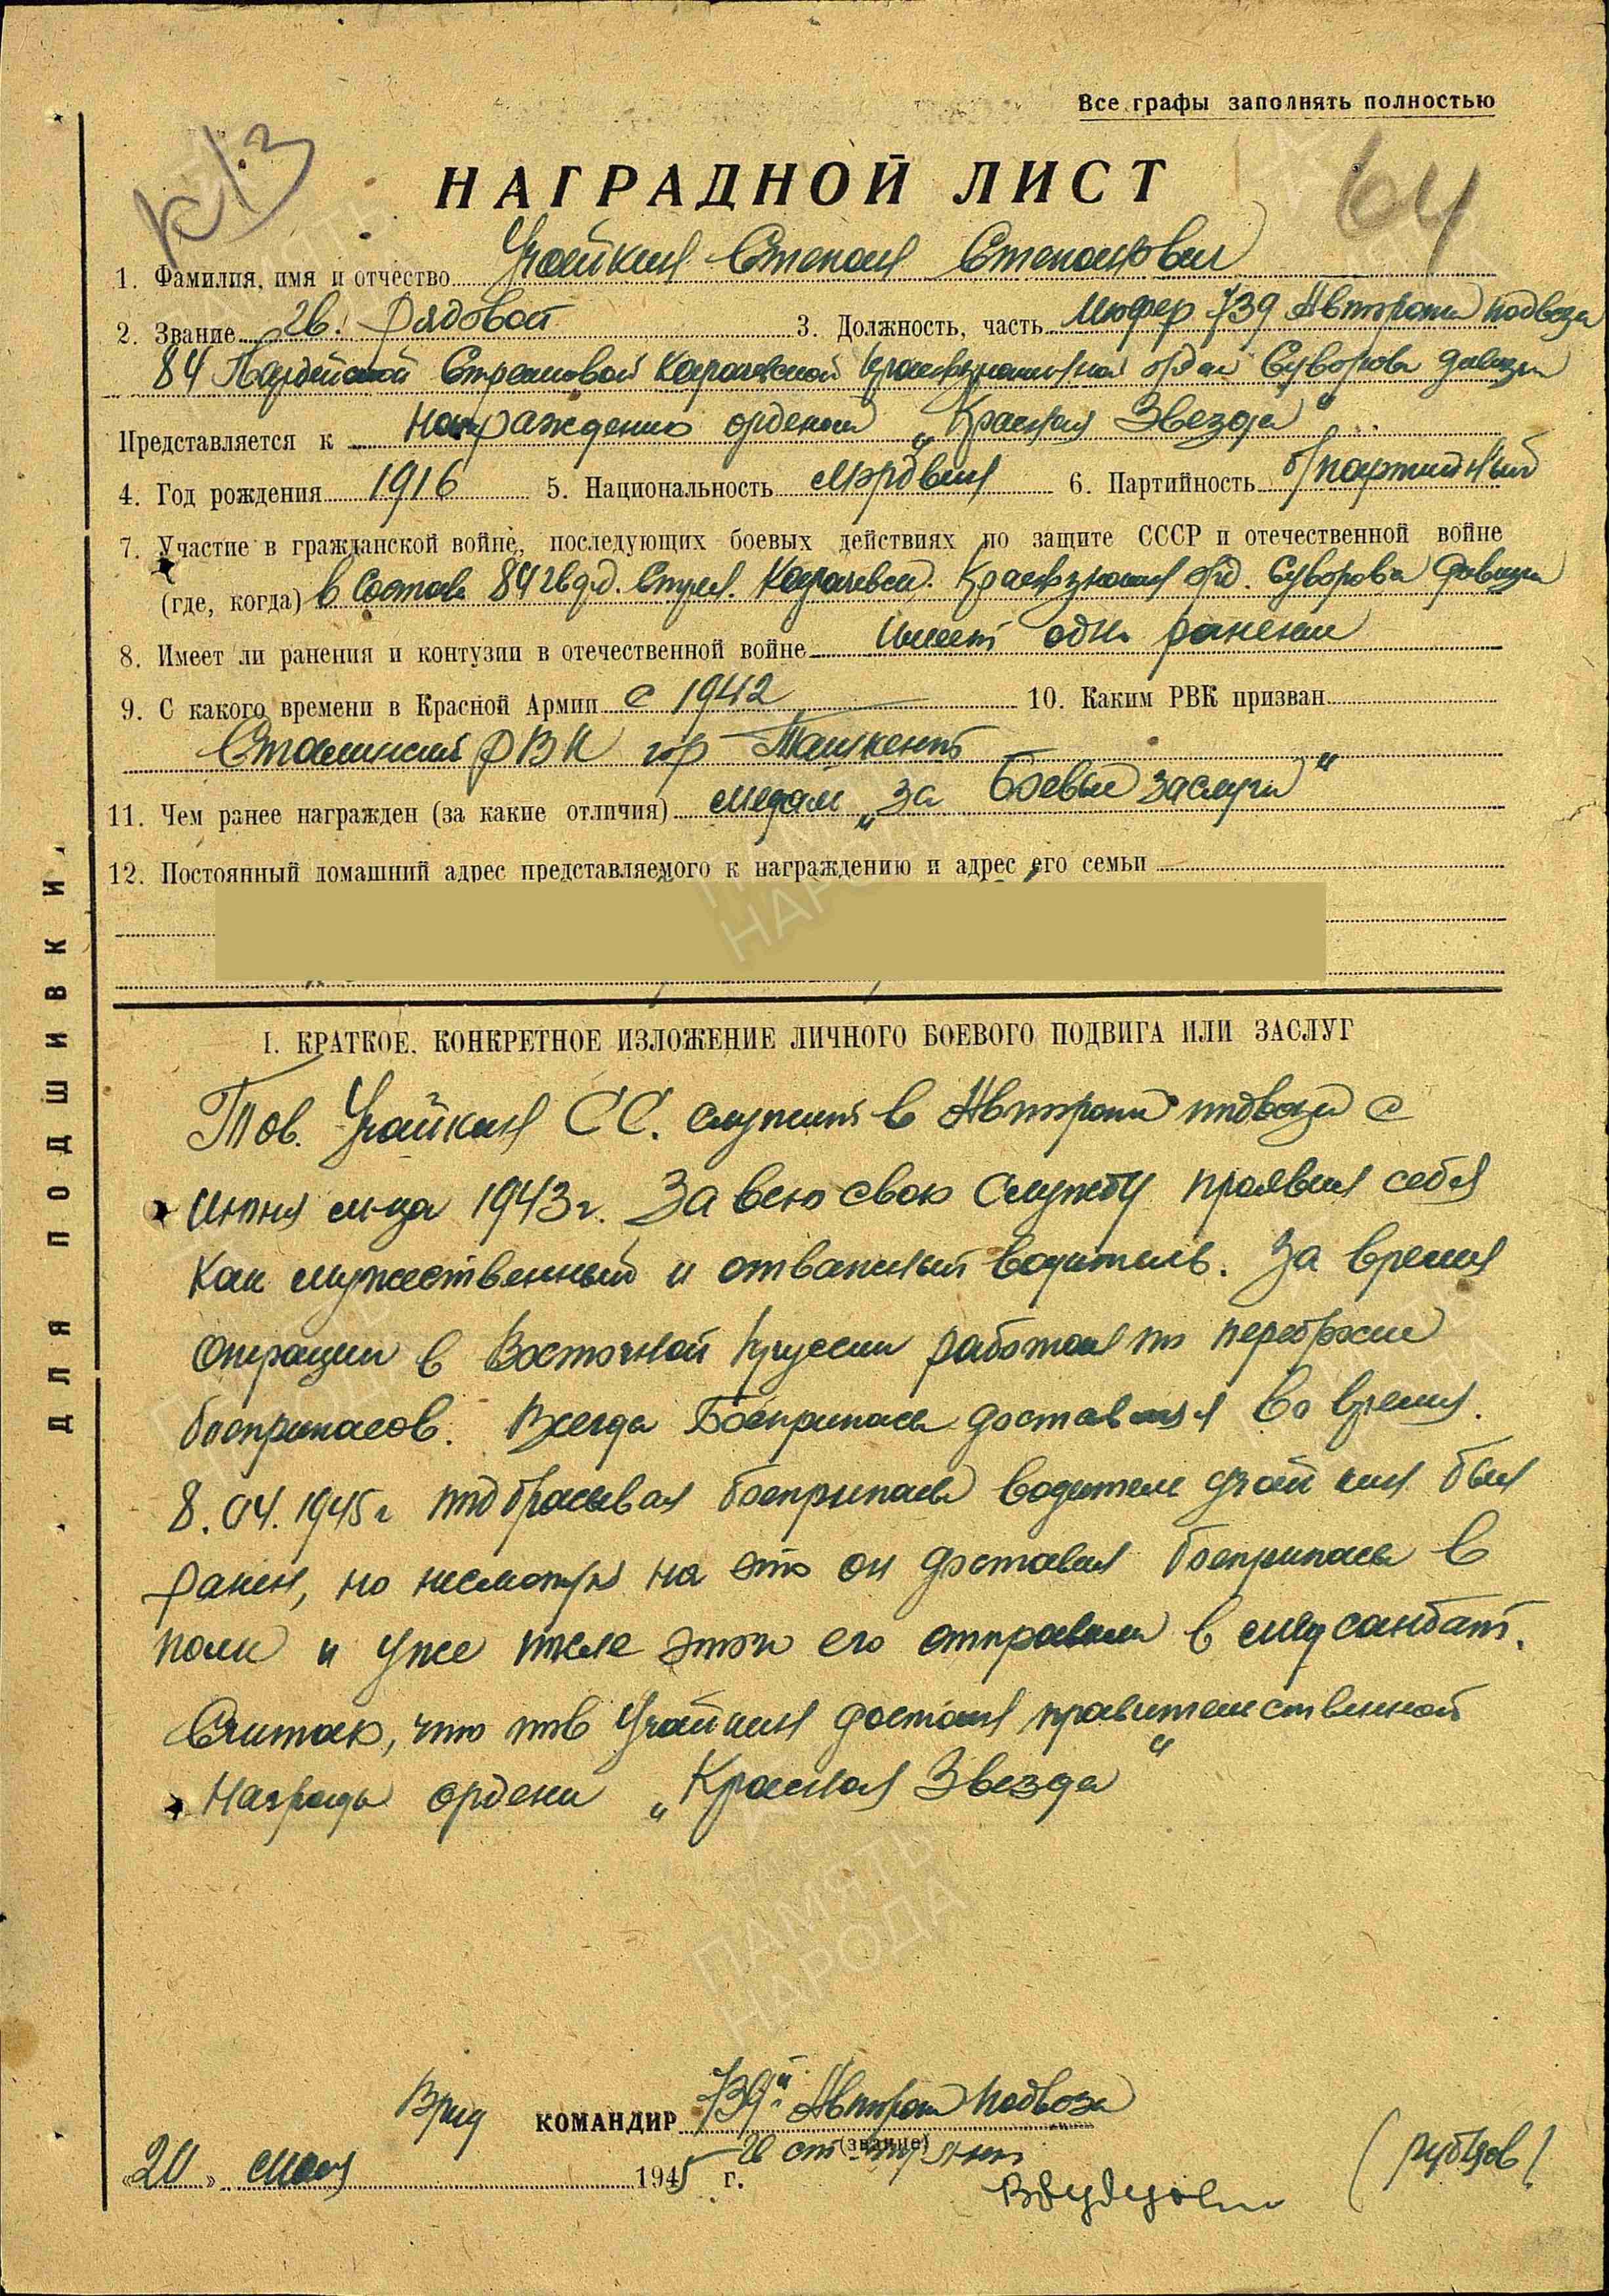 Все графы заполнять полностью
К/3
64
НАГРАДНОЙ ЛИСТ
1. Фамилия, имя и отчество Учайкин Степан Степанович
2. Звание гв. Рядовой 3. Должность, часть Шофер 739 Автороты подвоза
84 Гвардейской Стрелковой Карачевской Краснознаменной орден Суворова дивизии
Представляется к награждению орденом „Красная Звезда“
4. Год рождения 1916 5. Национальность Мордвин 6. Партийность б/партийный
7. Участие в гражданской войне, последующих боевых действиях по защите СССР и отечественной войне
(где, когда) в Составе 84 гвард. Стрел. Карачевск. Краснознамен орд. Суворова Дивизии
8. Имеет ли ранения и контузии в отечественной войне Имеет одно ранение
9. С какого времени в Красной Армии с 1942 10. Каким РВК призван
Сталинский РВК гор Ташкент
11. Чем ранее награжден (за какие отличия) медаль „за Боевые заслуги“
12. Постоянный домашний адрес представляемого к награждению и адрес его семьи
I. КРАТКОЕ, КОНКРЕТНОЕ ИЗЛОЖЕНИЕ ЛИЧНОГО БОЕВОГО ПОДВИГА ИЛИ ЗАСЛУГ
Тов. Учайкин СС. служит в Автороте подвоза с
Июня м-ца 1943г. За всю свою Службу проявил себя
Как мужественный и отважный водитель. За время
Операции в Восточной Пруссии работал по переброске
боеприпасов. Всегда Боеприпасы доставлял во время.
8.04.1945г подбрасывая боеприпасы водитель Учайкин был
ранен, но несмотря на это он доставил боеприпасы в
полк и уже после этого его отправили в медсанбат.
Считаю, что тов Учайкин достоин правительственной
Награды ордена „Красная Звезда“
Врид КОМАНДИР 739й Автороты Подвоза
(звание)
гв ст
„20“ мая 1945 г.
(Рубцов)
ДЛЯ ПОДШИВКИ
ПАМЯТЬ
НАРОДА